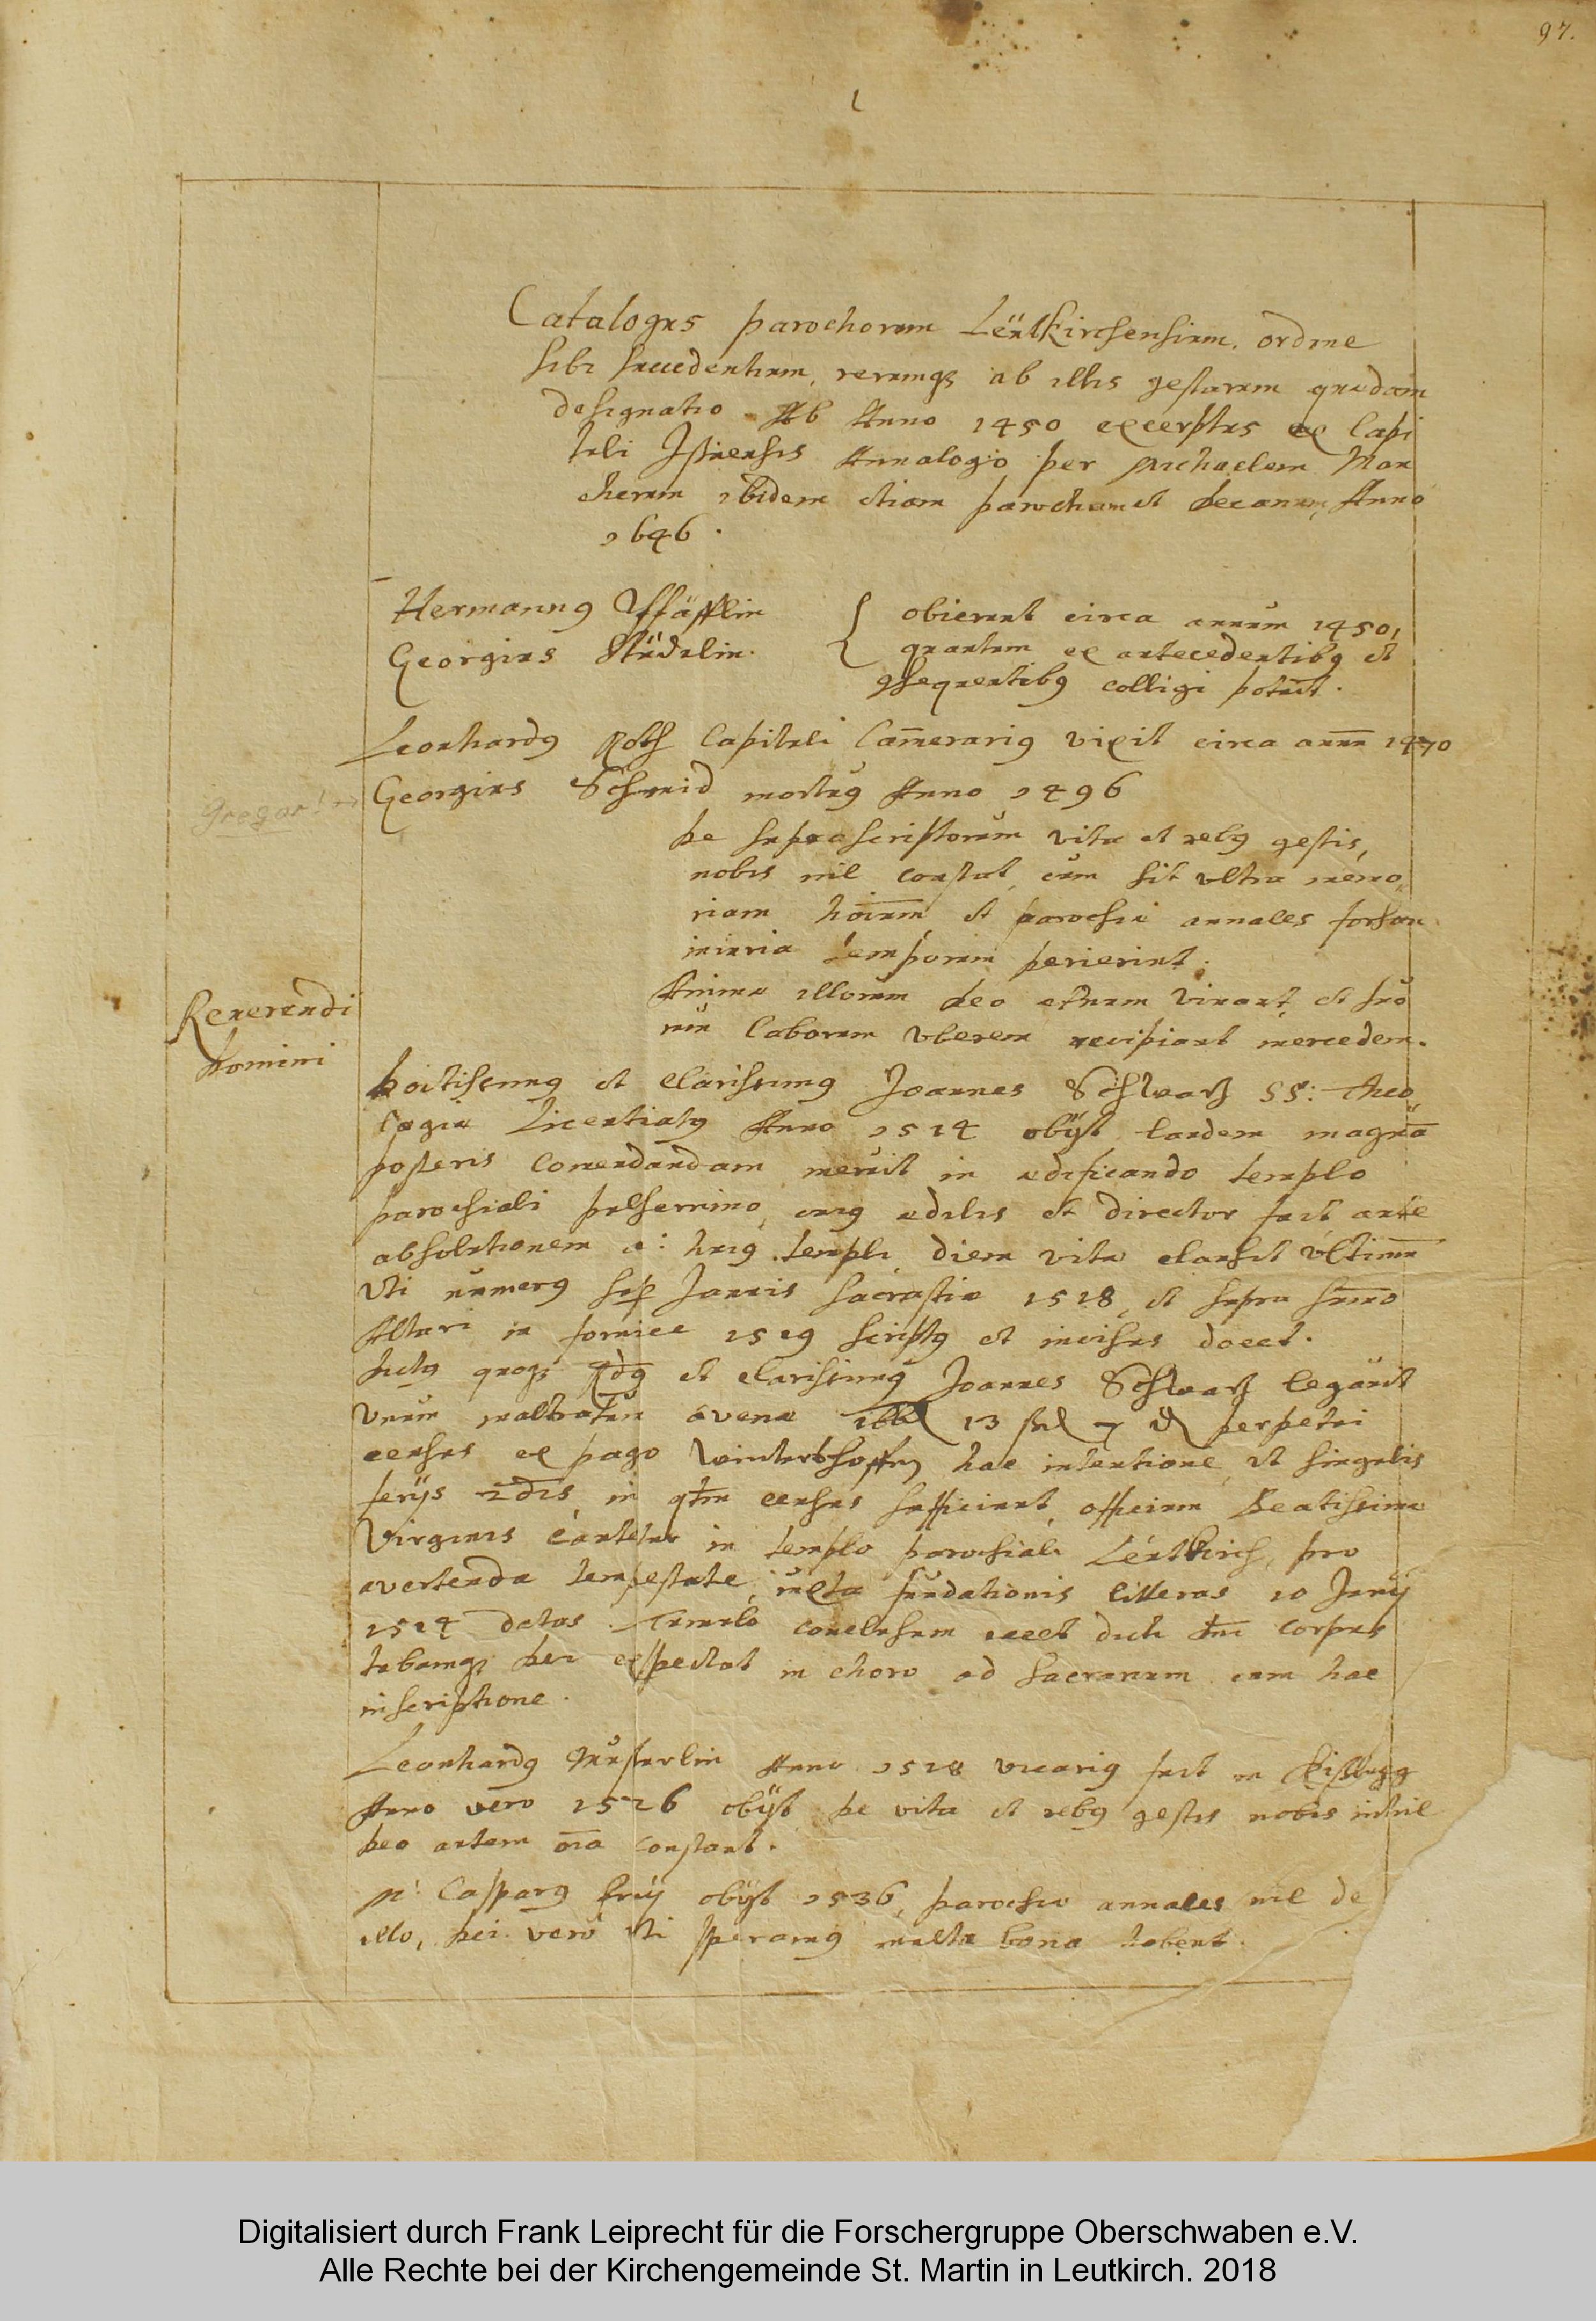 97.
Catalogus parochorum Leütkirchensium, ordine
sibi succedentium, rerumq3 ab illis gestarum quædam
designatio Ab Anno 1450 excerptus ex Capi
tuli Jsnensis Annalogio per Michaelem
cherum ibidem etiam parochum et Decanum, Anno
1646.
Hermann9 Pfäfflin { obierunt circa annum 1450,
Georgius Stüdlin. quantum ex antecedentib9 et
9sequentib9 colligi potuit.
Leonhard9 Roth Capituli Camerari9 vixit circa annu 1470
Gregor!→ Georgius Schmid mortu9 Anno 1496
De supra scriptorum vita et reb9 gestis,
nobis nil constat, cum sit ultra memo,
riam hoium et parochiæ annales forsan
iniuria temporum perierint.
Animæ illorum Deo æternum vivant, et suo
rum laborum uberem recipiant mercedem.
Reverendi
Domini
Doctissimg et clarissimg Joannes Schwartz SS: Theo,
logiæ Licentiatg Anno 1524 obijt laudem magna
posteris comendandam meruit in ædificando templo
parochiali pulherrimo, cuig ædilis et director fuit ante
absolutionem a: huig templi, diem vitæ clausit ultimu
Uti numerg sup Januis sacrastiæ 1518, et supra summo
Altari in fornice 1519 scriptg et incisus docet.
Dictg quoq3 Rdg et clarissimg Joannes Schwartz legavit
unum maltratum avenæ 13 perpetui
census ex pago Wintershoffen hac intentione, ut singulis
ferijs 2dis, in qtm census sufficiunt, officium Beatissimæ
Virginis cantetur in templo parochiali Leütkirch, pro
avertenda tempestate, iuxta fundationis litteras 10 Junij
1524 datas. Tumulo conclusum iacet dicti dni corpus
tubamq3 Dei expectat in choro ad sacrarium cum hac
inscriptione.
Leonhardg Anno 1518 vicarig fuit in Kisslegg
Anno vero 1526 obijt, De vita et rebg gestis nobis nihil
Deo autem oia constant.
M: Casparg Frij obijt 1536, parochiæ annales nil de
illo, Dei vero uti speramg multa bona habent.
Digitalisiert durch Frank Leiprecht für die Forschergruppe Oberschwaben e.V.
Alle Rechte bei der Kirchengemeinde St. Martin in Leutkirch. 2018